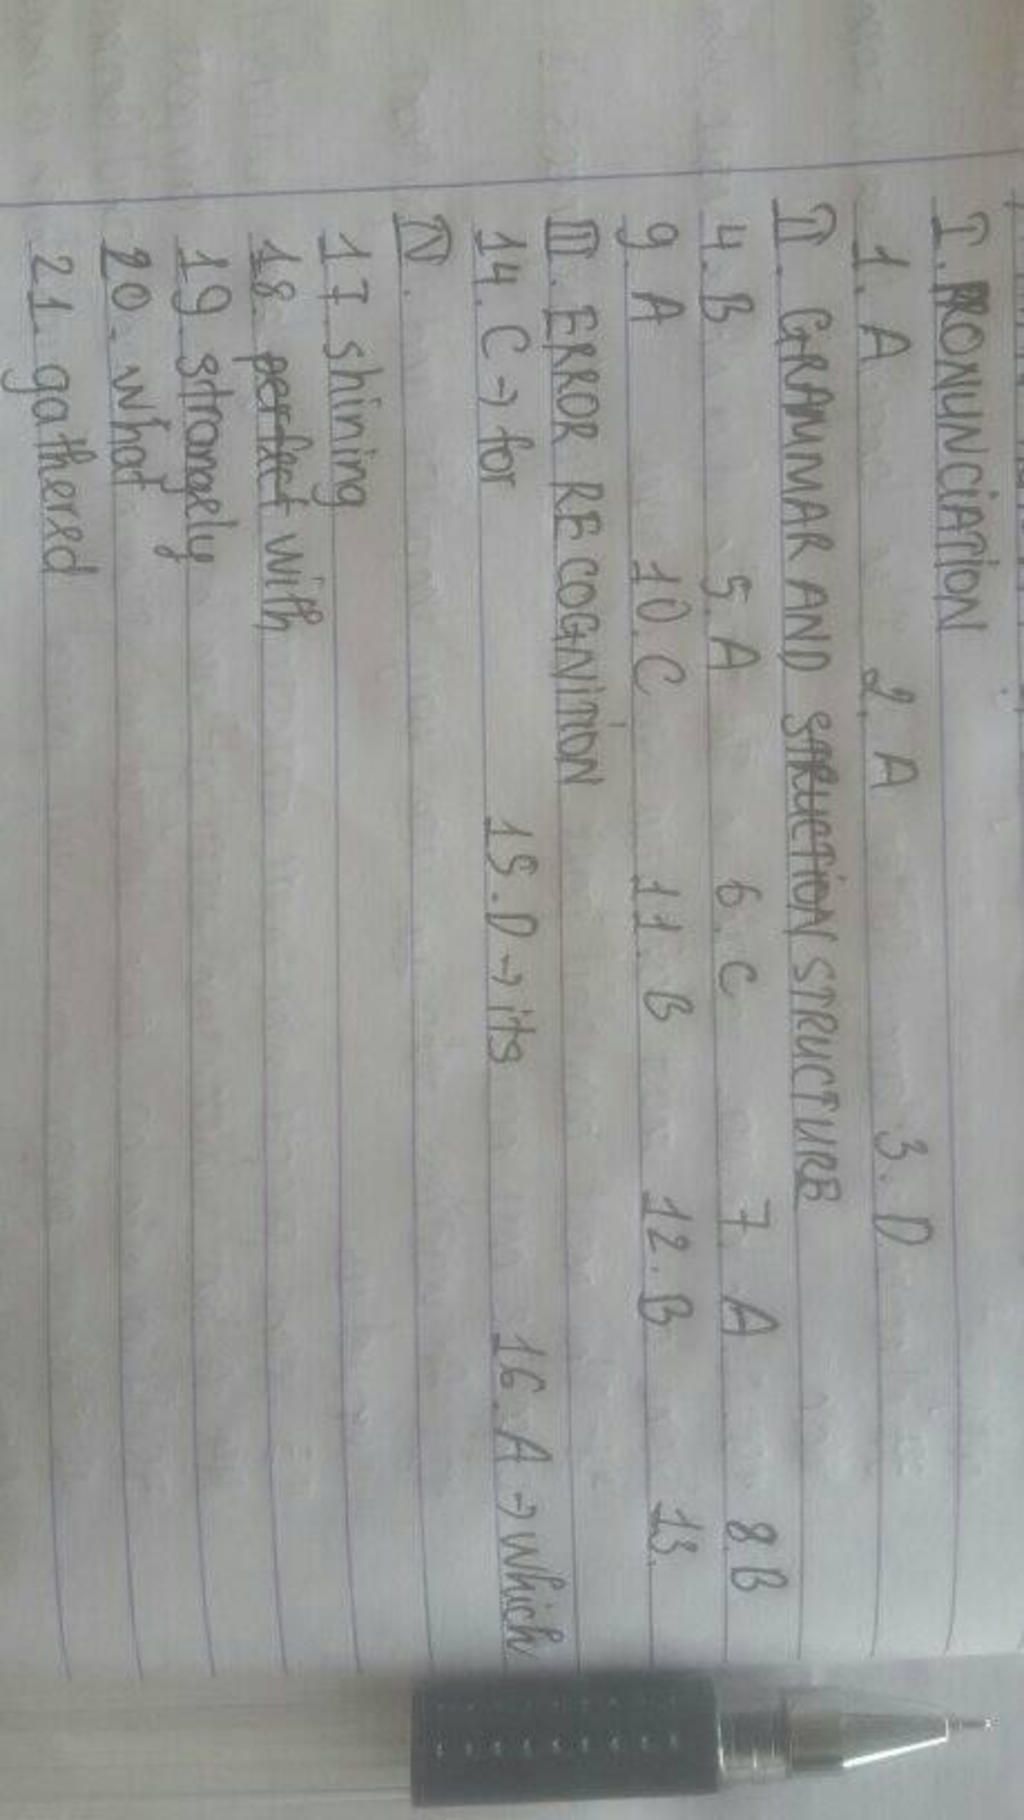 I. PRONUNCIATION
1. A 2. A 3. D
II. GRAMMAR AND STRUCTION STRUCTURE
4. B 5. A 6. C 7. A 8. B
9. A 10. C 11. B 12. B 13.
III. ERROR RECOGNITION
14. C → for 15. D → its 16. A → which
IV.
17. shining
18. perfect with
19. strangely
20. what
21. gathered